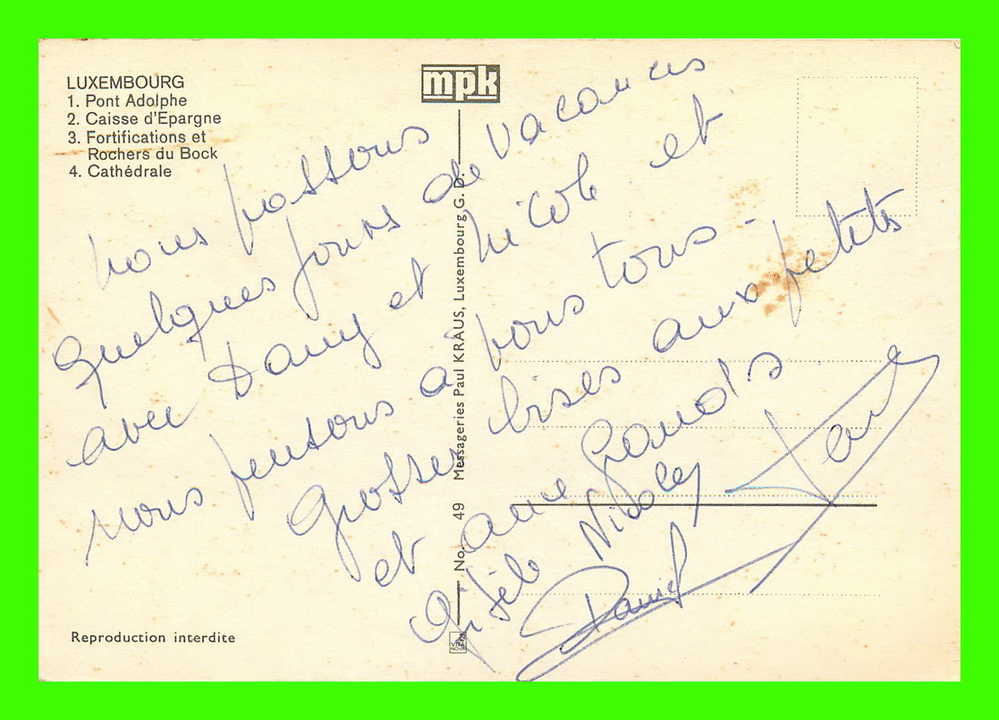 LUXEMBOURG
1. Pont Adolphe
2. Caisse d'Epargne
3. Fortifications et
Rochers du Bock
4. Cathédrale
mpk
nous passons
quelques jours de vacances
avec Dany et Nicole et
nous pensons à vous tous -
Grosses bises aux petits
et aux grands
Gisèle Nicole
Daniel
No. 49 Messageries Paul KRAUS, Luxembourg G. D.
Reproduction interdite